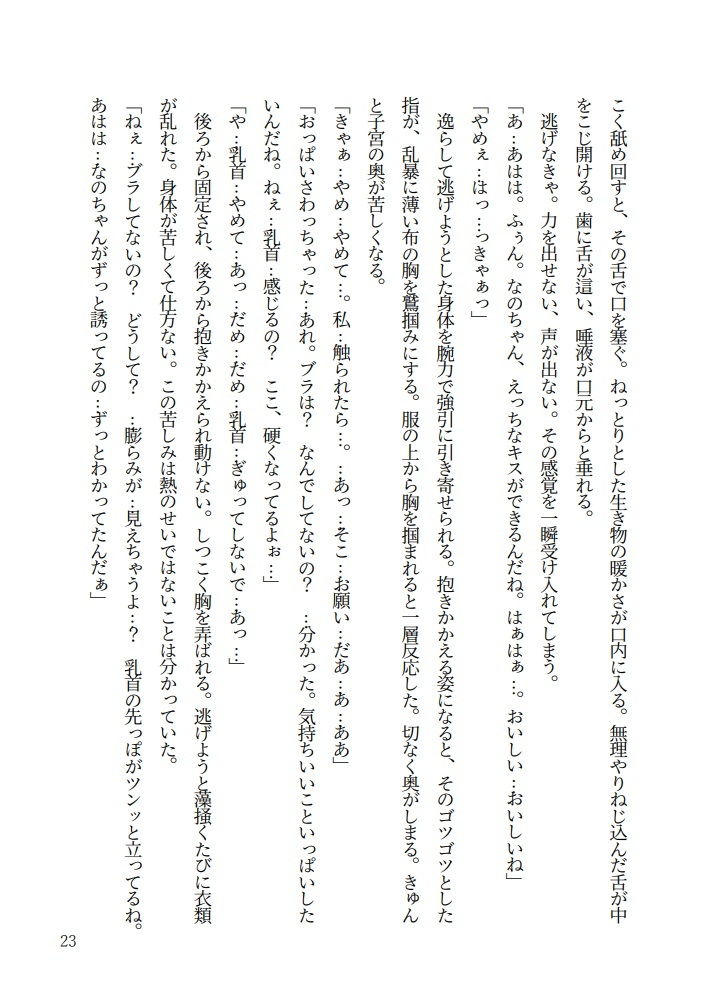 こく舐め回すと、その舌で口を塞ぐ。ねっとりとした生き物の暖かさが口内に入る。無理やりねじ込んだ舌が中
をこじ開ける。歯に舌が這い、唾液が口元からと垂れる。
逃げなきゃ。力を出せない、声が出ない。その感覚を一瞬受け入れてしまう。
「あ…あはは。ふぅん。なのちゃん、えっちなキスができるんだね。はぁはぁ…。おいしい…おいしいね」
「やめぇ…はっ…っきゃぁっ」
逸らして逃げようとした身体を腕力で強引に引き寄せられる。抱きかかえる姿になると、そのゴツゴツとした
指が、乱暴に薄い布の胸を鷲掴みにする。服の上から胸を掴まれると一層反応した。切なく奥がしまる。きゅん
と子宮の奥が苦しくなる。
「きゃぁ…やめ…やめて…。私…触られたら…。…あっ…そこ…お願い…だあ…あ…ああ」
「おっぱいさわっちゃった…あれ。ブラは？　なんでしてないの？　…分かった。気持ちいいこといっぱいした
いんだね。ねぇ…乳首…感じるの？　ここ、硬くなってるよぉ…」
「や…乳首…やめて…あっ…だめ…だめ…乳首…ぎゅってしないで…あっ…」
後ろから固定され、後ろから抱きかかえられ動けない。しつこく胸を弄ばれる。逃げようと藻掻くたびに衣類
が乱れた。身体が苦しくて仕方ない。この苦しみは熱のせいではないことは分かっていた。
「ねぇ…ブラしてないの？　どうして？　…膨らみが…見えちゃうよ…？　乳首の先っぽがツンッと立ってるね。
あはは…なのちゃんがずっと誘ってるの…ずっとわかってたんだぁ」
23